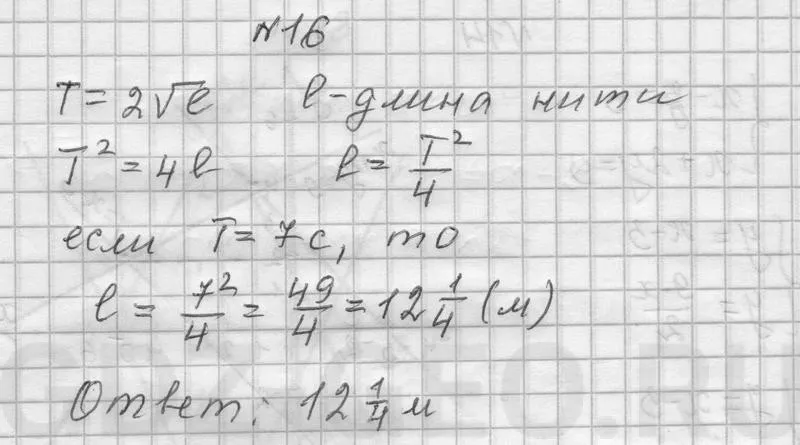 №16
T = 2√l   l - длина нити
T² = 4l   l = T²/4
если T = 7 с, то
l = 7²/4 = 49/4 = 12 1/4 (м)
Ответ: 12 1/4 м